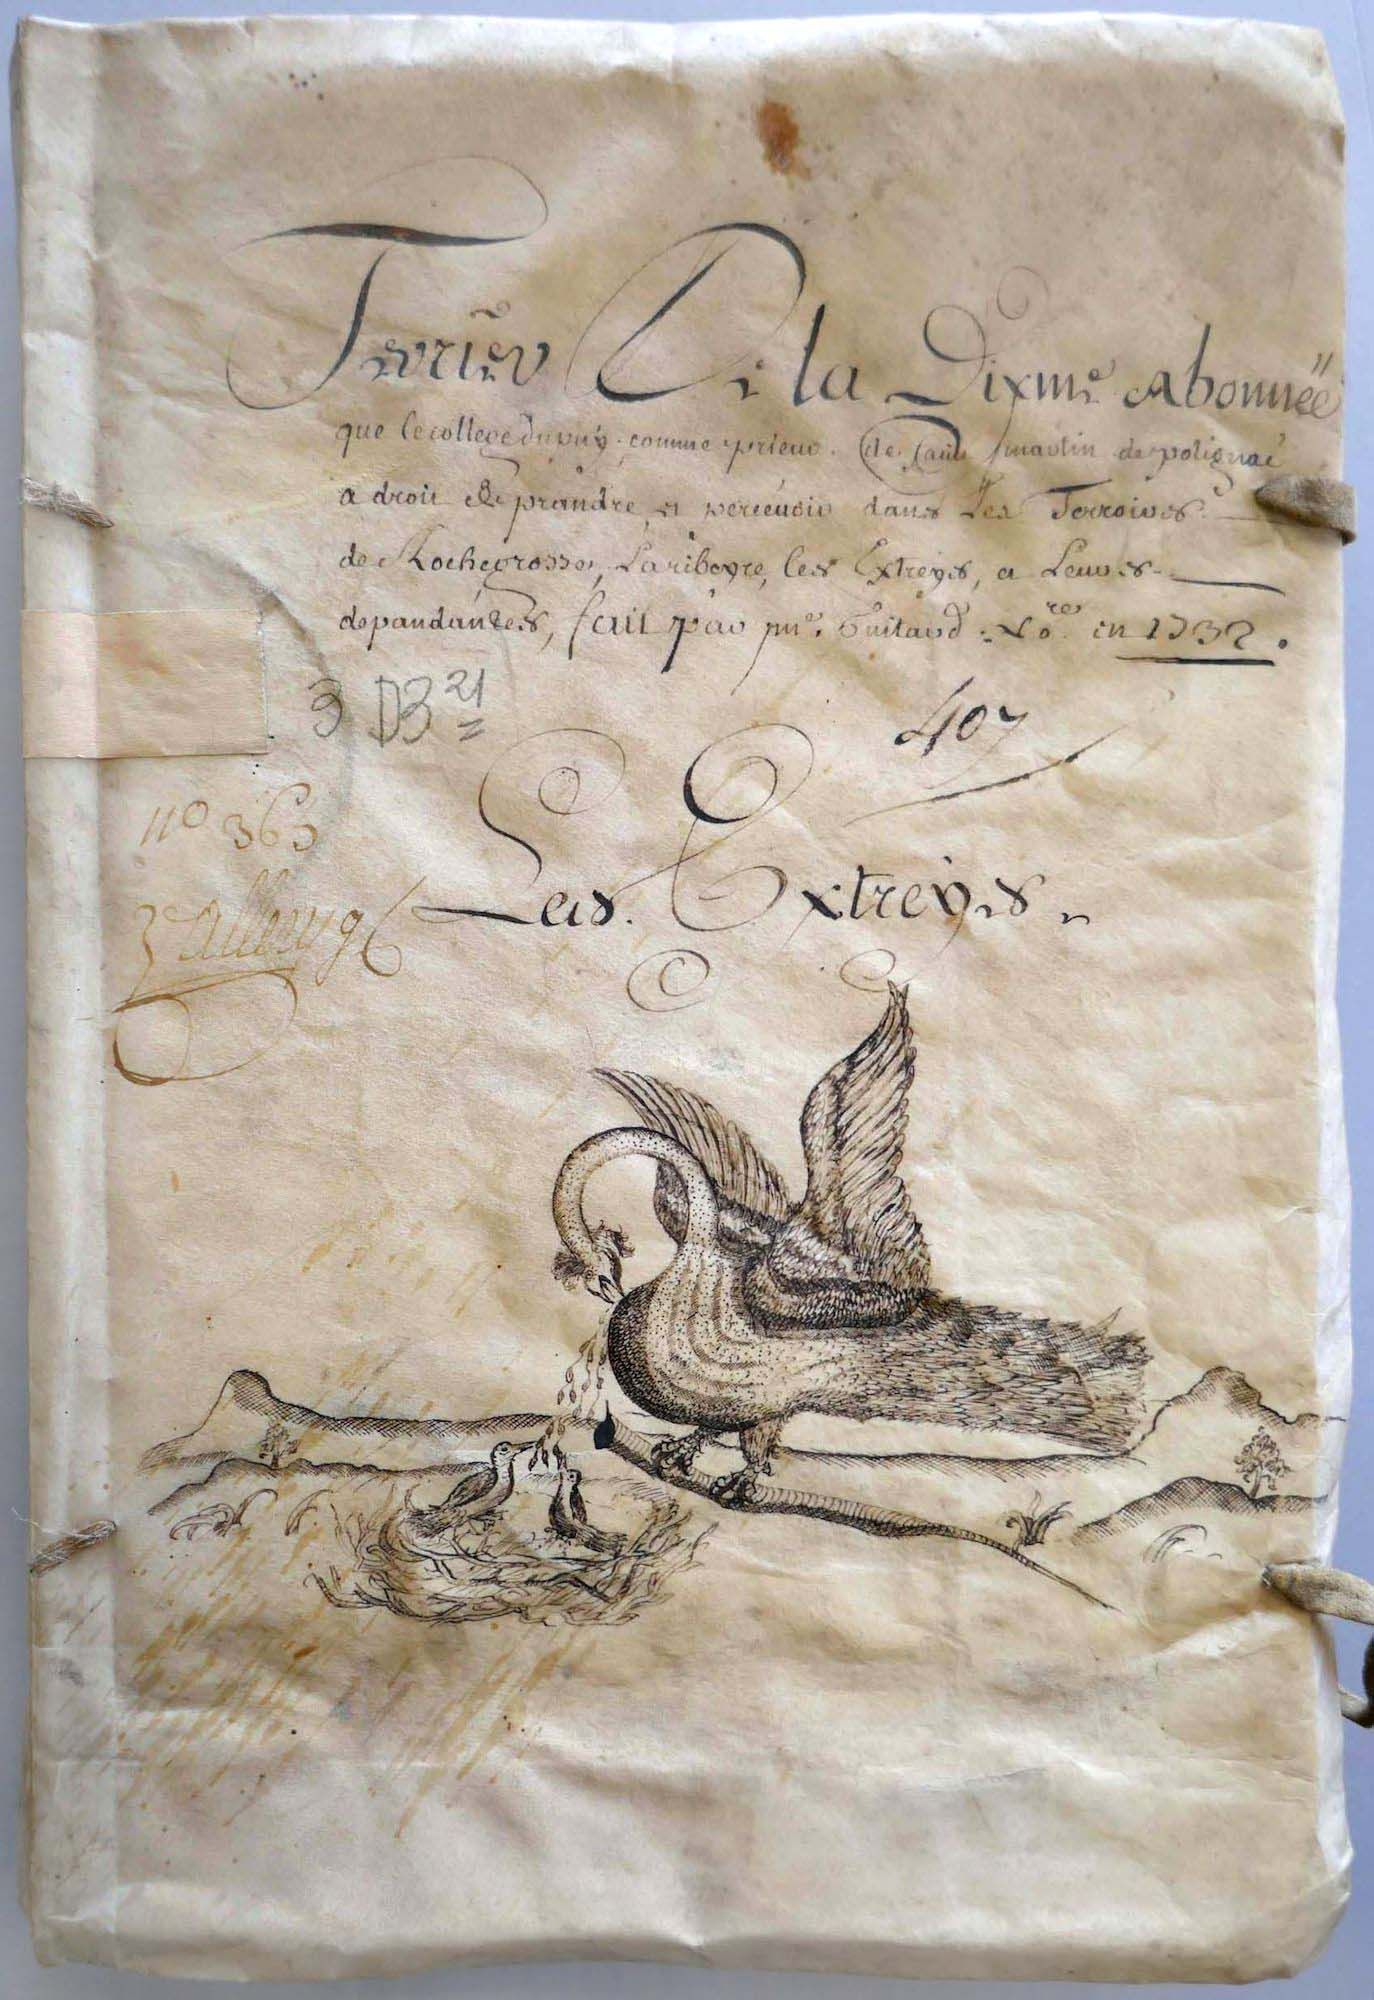 Terrier De la Dixme Abonnéë
que le college du puy, comme prieur. de saint martin de polignac
a droit de prandre, et percevoir dans Les Terroirs
de Rochegrosse, Lariboyre, les Extreÿs, et Leurs
depandances, fait par me. Guitard. No.re en 1737.
3 D3 21
407
no 363
Les Extreÿs